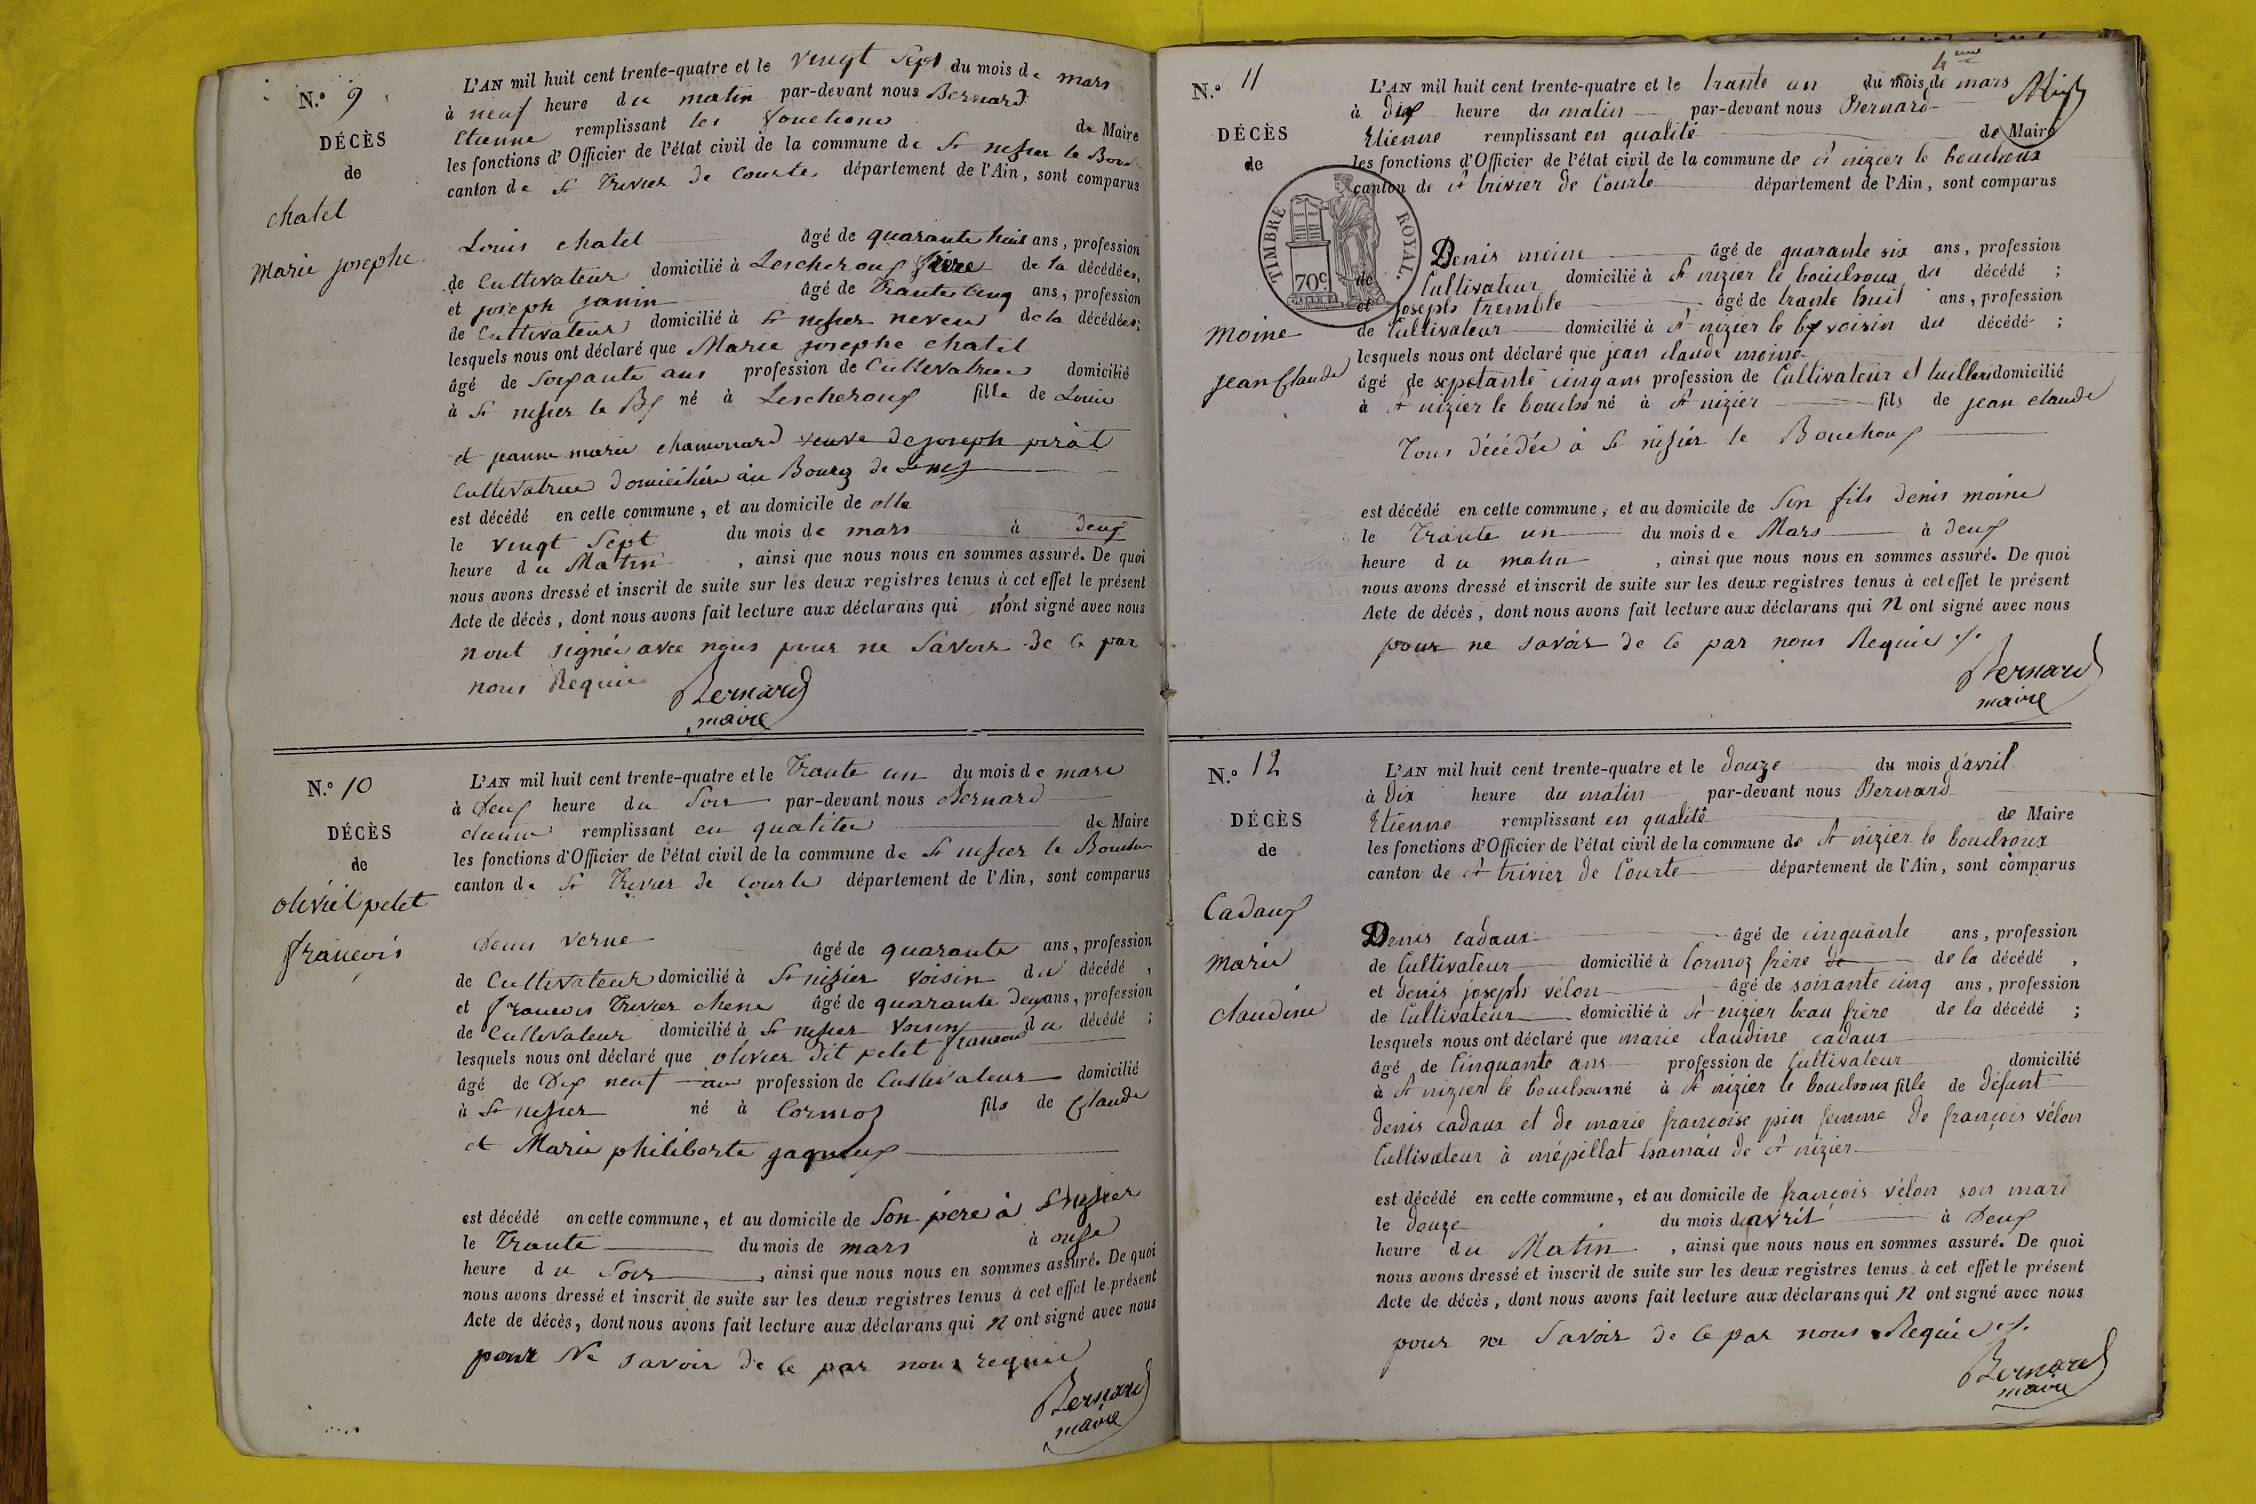 N.º 9
DÉCÈS
de
chatel
Marie josephe
L'AN mil huit cent trente-quatre et le vingt Sept du mois de mars
à neuf heure du matin par-devant nous Bernard
Etienne remplissant les fonctions de Maire
les fonctions d'Officier de l'état civil de la commune de St nisier le Bou
canton de St Trivier de Courtes département de l'Ain, sont comparus
Louis chatel âgé de quarante huit ans, profession
de Cultivateur domicilié à Lescheroux frère de la décédée,
et joseph janin âgé de Trante Cinq ans, profession
de Cultivateur domicilié à St nisier neveu de la décédée;
lesquels nous ont déclaré que Marie josephe chatel
âgé de soixante ans profession de Cultivatrice domicilié
à St nisier le Bx né à Lescheroux fille de Louis
et jeanne marie chamonard veuve de joseph pirat
Cultivatrice domiciliée au Bourg de
est décédé en cette commune, et au domicile de elle
le vingt Sept du mois de mars à deux
heure du Matin, ainsi que nous nous en sommes assuré. De quoi
nous avons dressé et inscrit de suite sur les deux registres tenus à cet effet le présent
Acte de décès, dont nous avons fait lecture aux déclarans qui n'ont signé avec nous
n'ont signée avec nous pour ne Savoir de Ce par
nous Requis
Bernard
maire
N.º 10
DÉCÈS
de
olivier petet
françois
L'AN mil huit cent trente-quatre et le Trante un du mois de mars
à Deux heure du Soir par-devant nous Bernard
etienne remplissant en qualitee de Maire
les fonctions d'Officier de l'état civil de la commune de St nisier le Bouchou
canton de St Trivier de Courte département de l'Ain, sont comparus
denis verne âgé de quarante ans, profession
de Cultivateur domicilié à St nizier voisin du décédé,
et françois Trivier chene âgé de quarante deux ans, profession
de Cultivateur domicilié à St nisier voisin du décédé;
lesquels nous ont déclaré que olivier dit petet françois
âgé de Dix neuf ans profession de Cultivateur domicilié
à St nisier né à Cormoz fils de Claude
et Marie philiberte gagneux
est décédé en cette commune, et au domicile de Son père à St nizier
le Trante du mois de mars à onze
heure du Soir, ainsi que nous nous en sommes assuré. De quoi
nous avons dressé et inscrit de suite sur les deux registres tenus à cet effet le présent
Acte de décès, dont nous avons fait lecture aux déclarans qui n ont signé avec nous
pour Ne savoir de Ce par nous requie
Bernard
maire
4me
N.º 11
DÉCÈS
de
moine
jean Claude
TIMBRE ROYAL.
70c
L'AN mil huit cent trente-quatre et le trante un du mois de mars
à dix heure du matin par-devant nous Bernard
Etienne remplissant en qualité de Maire
les fonctions d'Officier de l'état civil de la commune de St nizier le bouchoux
canton de St trivier de Courte département de l'Ain, sont comparus
Denis moine âgé de quarante six ans, profession
de Cultivateur domicilié à St nizier le bouchoux du décédé;
et joseph tremble âgé de trante huit ans, profession
de Cultivateur domicilié à St nizier le bx voisin du décédé;
lesquels nous ont déclaré que jean claude moine
âgé de septante cinq ans profession de Cultivateur et domicilié
à St nizier le boucho né à St nizier fils de jean claude
Tous décédée à St nisier le Bouchoux
est décédé en cette commune, et au domicile de Son fils denis moine
le Trante un du mois de Mars à deux
heure du matin, ainsi que nous nous en sommes assuré. De quoi
nous avons dressé et inscrit de suite sur les deux registres tenus à cet effet le présent
Acte de décès, dont nous avons fait lecture aux déclarans qui n ont signé avec nous
pour ne savoir de Ce par nous Requie
Bernard
maire
N.º 12
DÉCÈS
de
Cadaux
marie
claudine
L'AN mil huit cent trente-quatre et le douze du mois d'avril
à Dix heure du matin par-devant nous Bernard
Etienne remplissant en qualité de Maire
les fonctions d'Officier de l'état civil de la commune de St nizier le bouchoux
canton de St trivier de Courte département de l'Ain, sont comparus
Denis cadaux âgé de cinquante ans, profession
de Cultivateur domicilié à Cormoz frère de de la décédé,
et denis joseph vélon âgé de soixante cinq ans, profession
de Cultivateur domicilié à St nizier beau frère de la décédé;
lesquels nous ont déclaré que marie claudine cadaux
âgé de Cinquante ans profession de Cultivateur domicilié
à St nizier le bouchoux né à St nizier le bouchoux fille de défunt
denis cadaux et de marie françoise pin femme de françois vélon
Cultivateur à mépillat hamau de St nizier
est décédé en cette commune, et au domicile de françois vélon son mari
le douze du mois d'avril à Deux
heure du Matin, ainsi que nous nous en sommes assuré. De quoi
nous avons dressé et inscrit de suite sur les deux registres tenus à cet effet le présent
Acte de décès, dont nous avons fait lecture aux déclarans qui n ont signé avec nous
pour ne Savoir de Ce par nous Requie
Bernard
maire